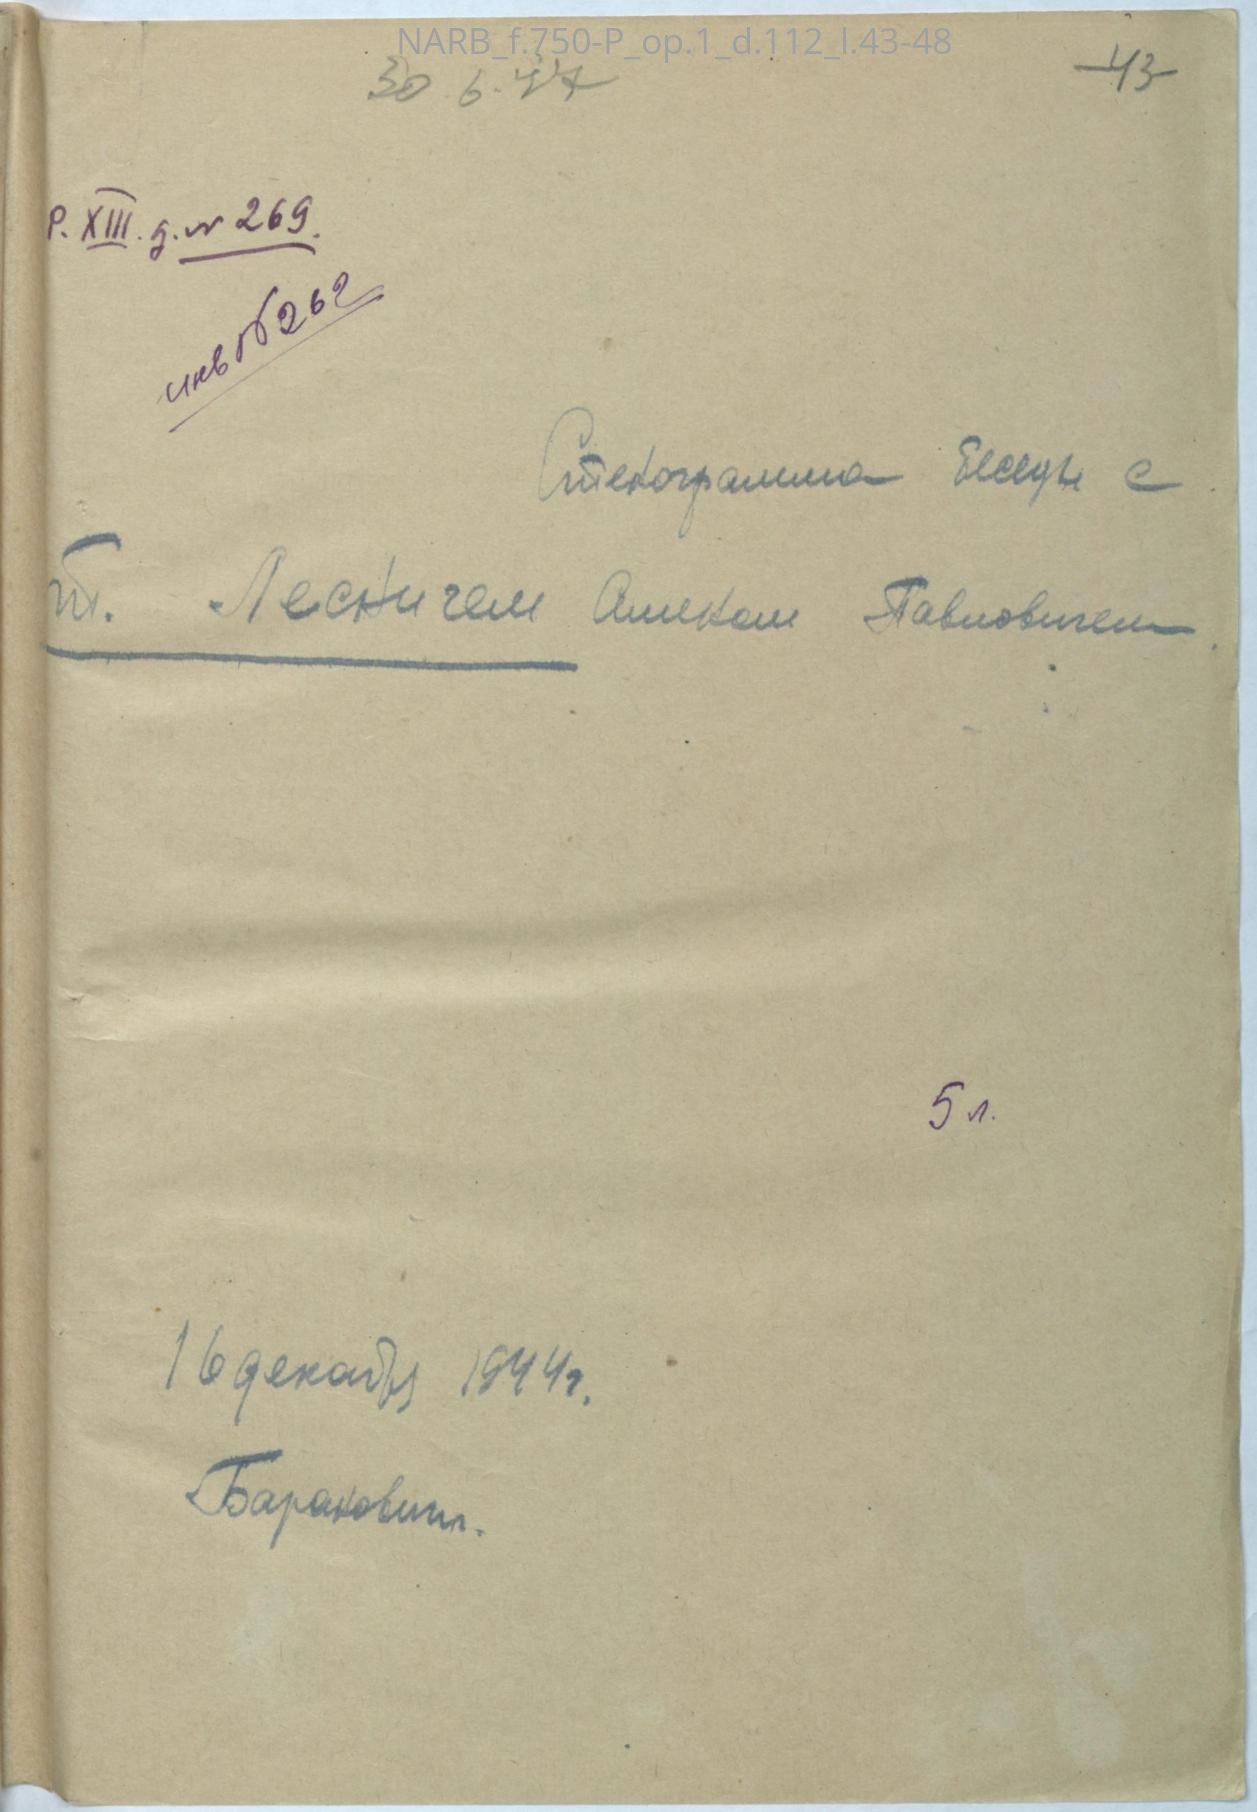 NARB_f.750-P_op.1_d.112_l.43-48
30.6.47
43
Р. XIII. д. № 269.
инв № 262
Стенограмма беседы с
т. Лесничем Павловичем.
5 л.
16 декабря 1944 г.
Баранович.